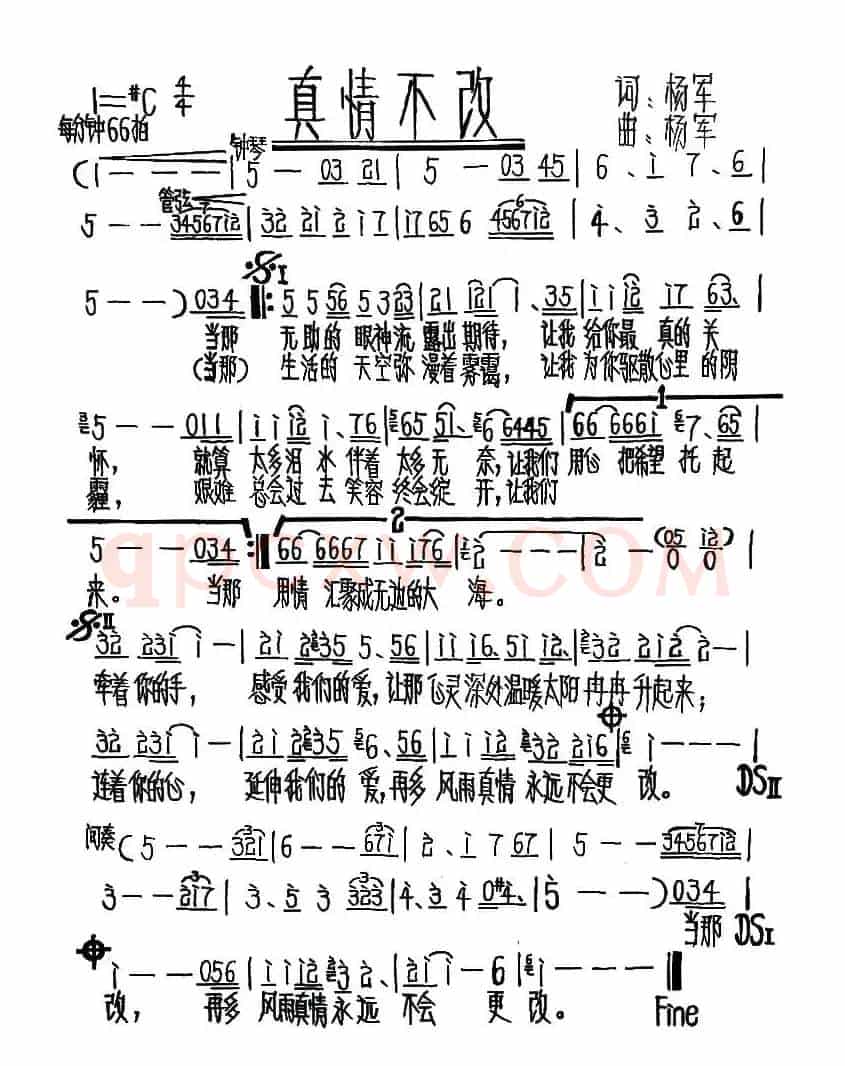 真情不改
1=#C 4/4
词：杨军
每分钟66拍
曲：杨军
钟琴
(i - - - | 5 - 03 21 | 5 - 03 45 | 6、i 7、6 |
管弦
5 - - 34567i2 | 32 21 2 i7 | i765 6 4567i2 | 4、3 2、6 |
𝄋I
5 - - ) 034 ‖: 5 5 56 5 323 | 21 121 1、35 | i i i2 i7 63、 |
当那 无助的 眼神流 露出期待， 让我 给你最 真的 关
(当那) 生活的 天空弥 漫着雾霭， 让我 为你驱散心里 的阴
1
5 - - 011 | i i i2 i、76 | 65 51、6 6445 | 66 666i 7、65 |
怀， 就算 太多泪 水 伴着 太多无 奈，让我们 用心 把希望 托 起
霾， 艰难 总会过 去 笑容 终会绽 开，让我们
2
5 - - 034 :‖ 66 6667 i i76 | 2 - - - | 2 - (05 i2) 0 0
来。 当那 用情 汇聚成无边的大 海。
qpcxw.com
𝄋II
32 23i i - | 2i i235 5、56 | ii i6、5i i2、 | 32 2i2 2 - |
牵着 你的手， 感受 我们的爱，让那 心灵深处温暖太阳 冉冉 升起来；
32 23i i - | 2i 2335 6、56 | i i ii2 32 2i6 | i - - - |
连着 你的心， 延伸我们的 爱，再多 风雨真情 永远不会更 改。 DSII
间奏 (5 - - 32i | 6 - - 67i | 2、i 7 67 | 5 - - 34567i2 |
3 - - 2i7 | 3、5 3 323 | 4、3 4 0#4、 | 5 - - ) 034 |
当那 DSI
i - - 056 | i i i2 3 2、 | 2i i - 6 | i - - - ‖
改， 再多 风雨真情 永远 不会 更 改。 Fine